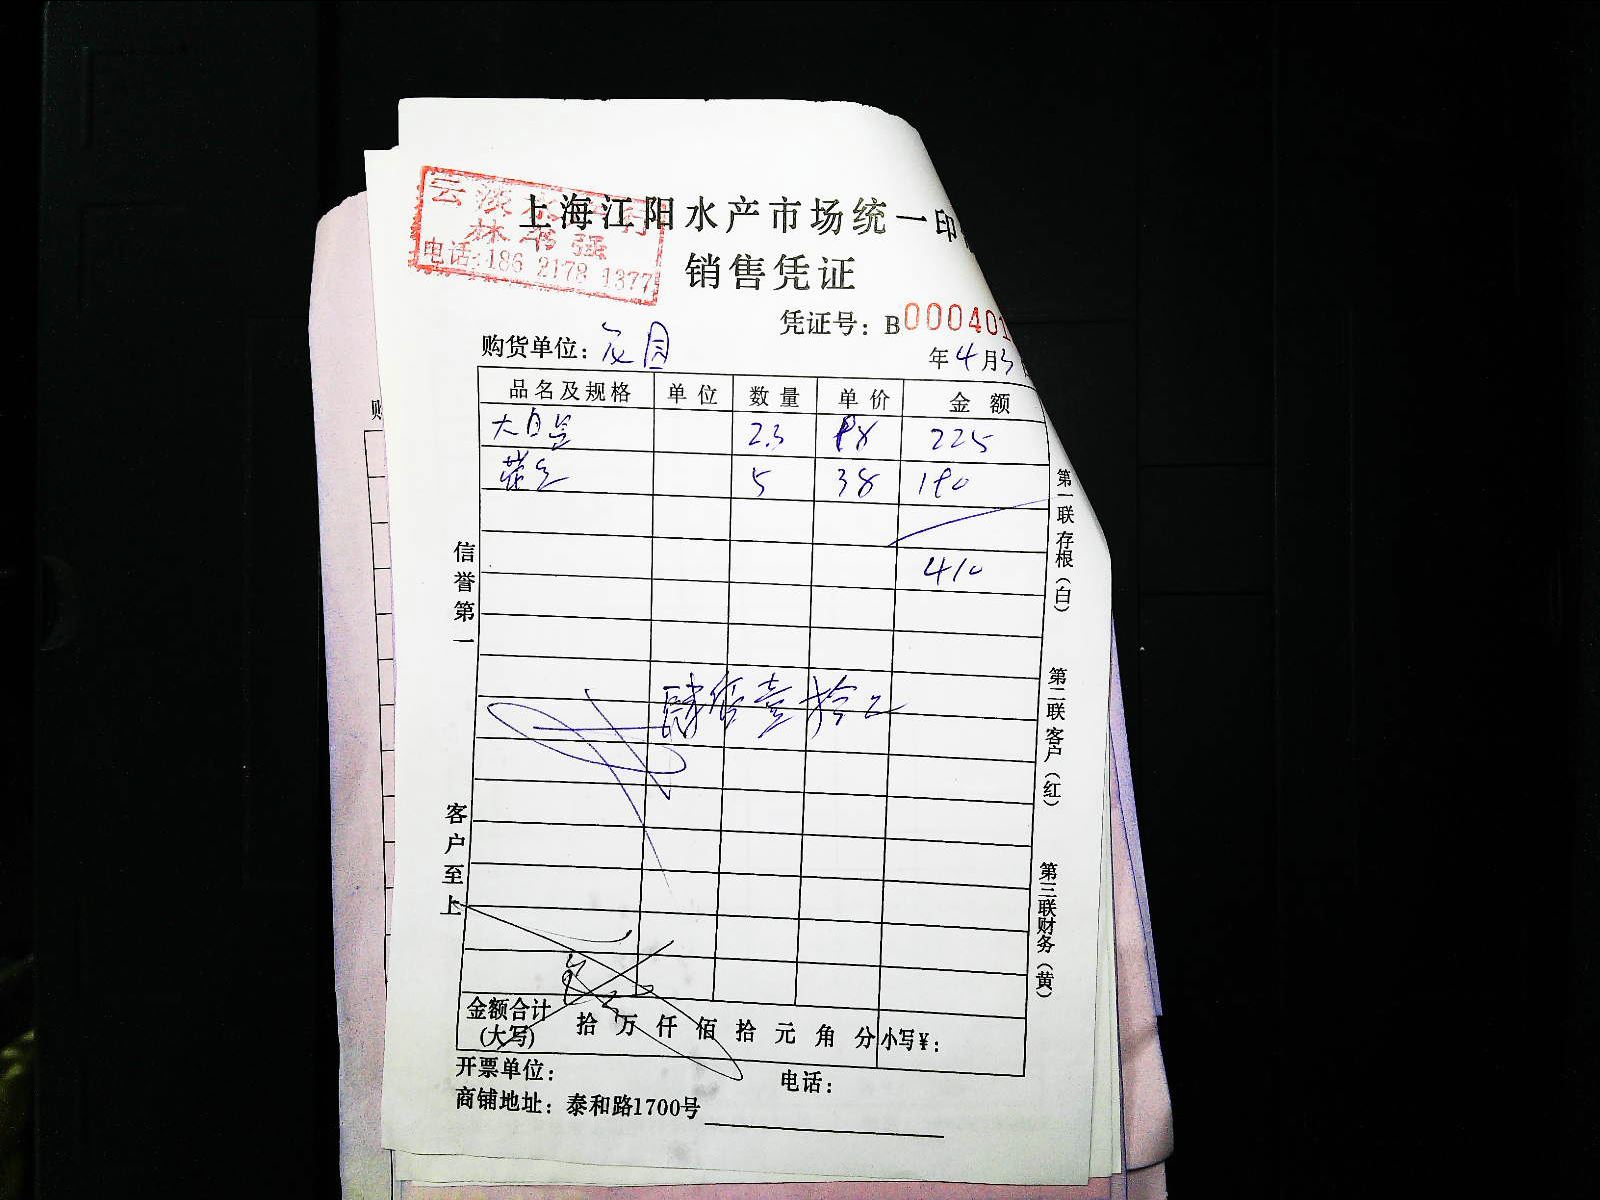 上海江阳水产市场统一印
销售凭证
电话:186 2178 1377
凭证号: B000401
购货单位:
年4月3
品名及规格 单位 数量 单价 金额
2.3 98 225
5 38 190
410
肆佰壹拾元
信誉第一
客户至上
第一联存根(白)
第二联客户(红)
第三联财务(黄)
金额合计 拾 万 仟 佰 拾 元 角 分 小写¥:
(大写)
开票单位: 电话:
商铺地址: 泰和路1700号
购